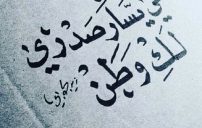 في يسار صدري
لك وطن